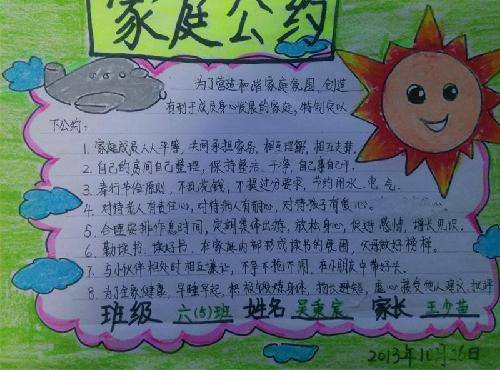 家庭公约
为了营造和谐家庭氛围,创造
有利于成员身心发展的家庭,特制定以
下公约:
1. 家庭成员人人平等,共同承担家务,相互理解,相互支持.
2. 自己的房间自己整理,保持整洁、干净,自己事自己干.
3. 奉行节俭原则,不乱花钱,不提过分要求,节约用水、电、气.
4. 对待老人有责任心,对待病人有耐心,对待孩子有爱心.
5. 合理安排作息时间,定期集体出游,放松身心,促进感情,增长见识.
6. 勤读书、读好书,在家庭内部形成读书的氛围,父母做好榜样.
7. 与小伙伴相处时相互谦让,不争不抢不闹,在小朋友中带好头.
8. 为了全家健康,早睡早起,积极锻炼身体,虚心接受他人建议、批评
班级 六(5)班 姓名 吴秉宸 家长 王少苗
2013年10月26日